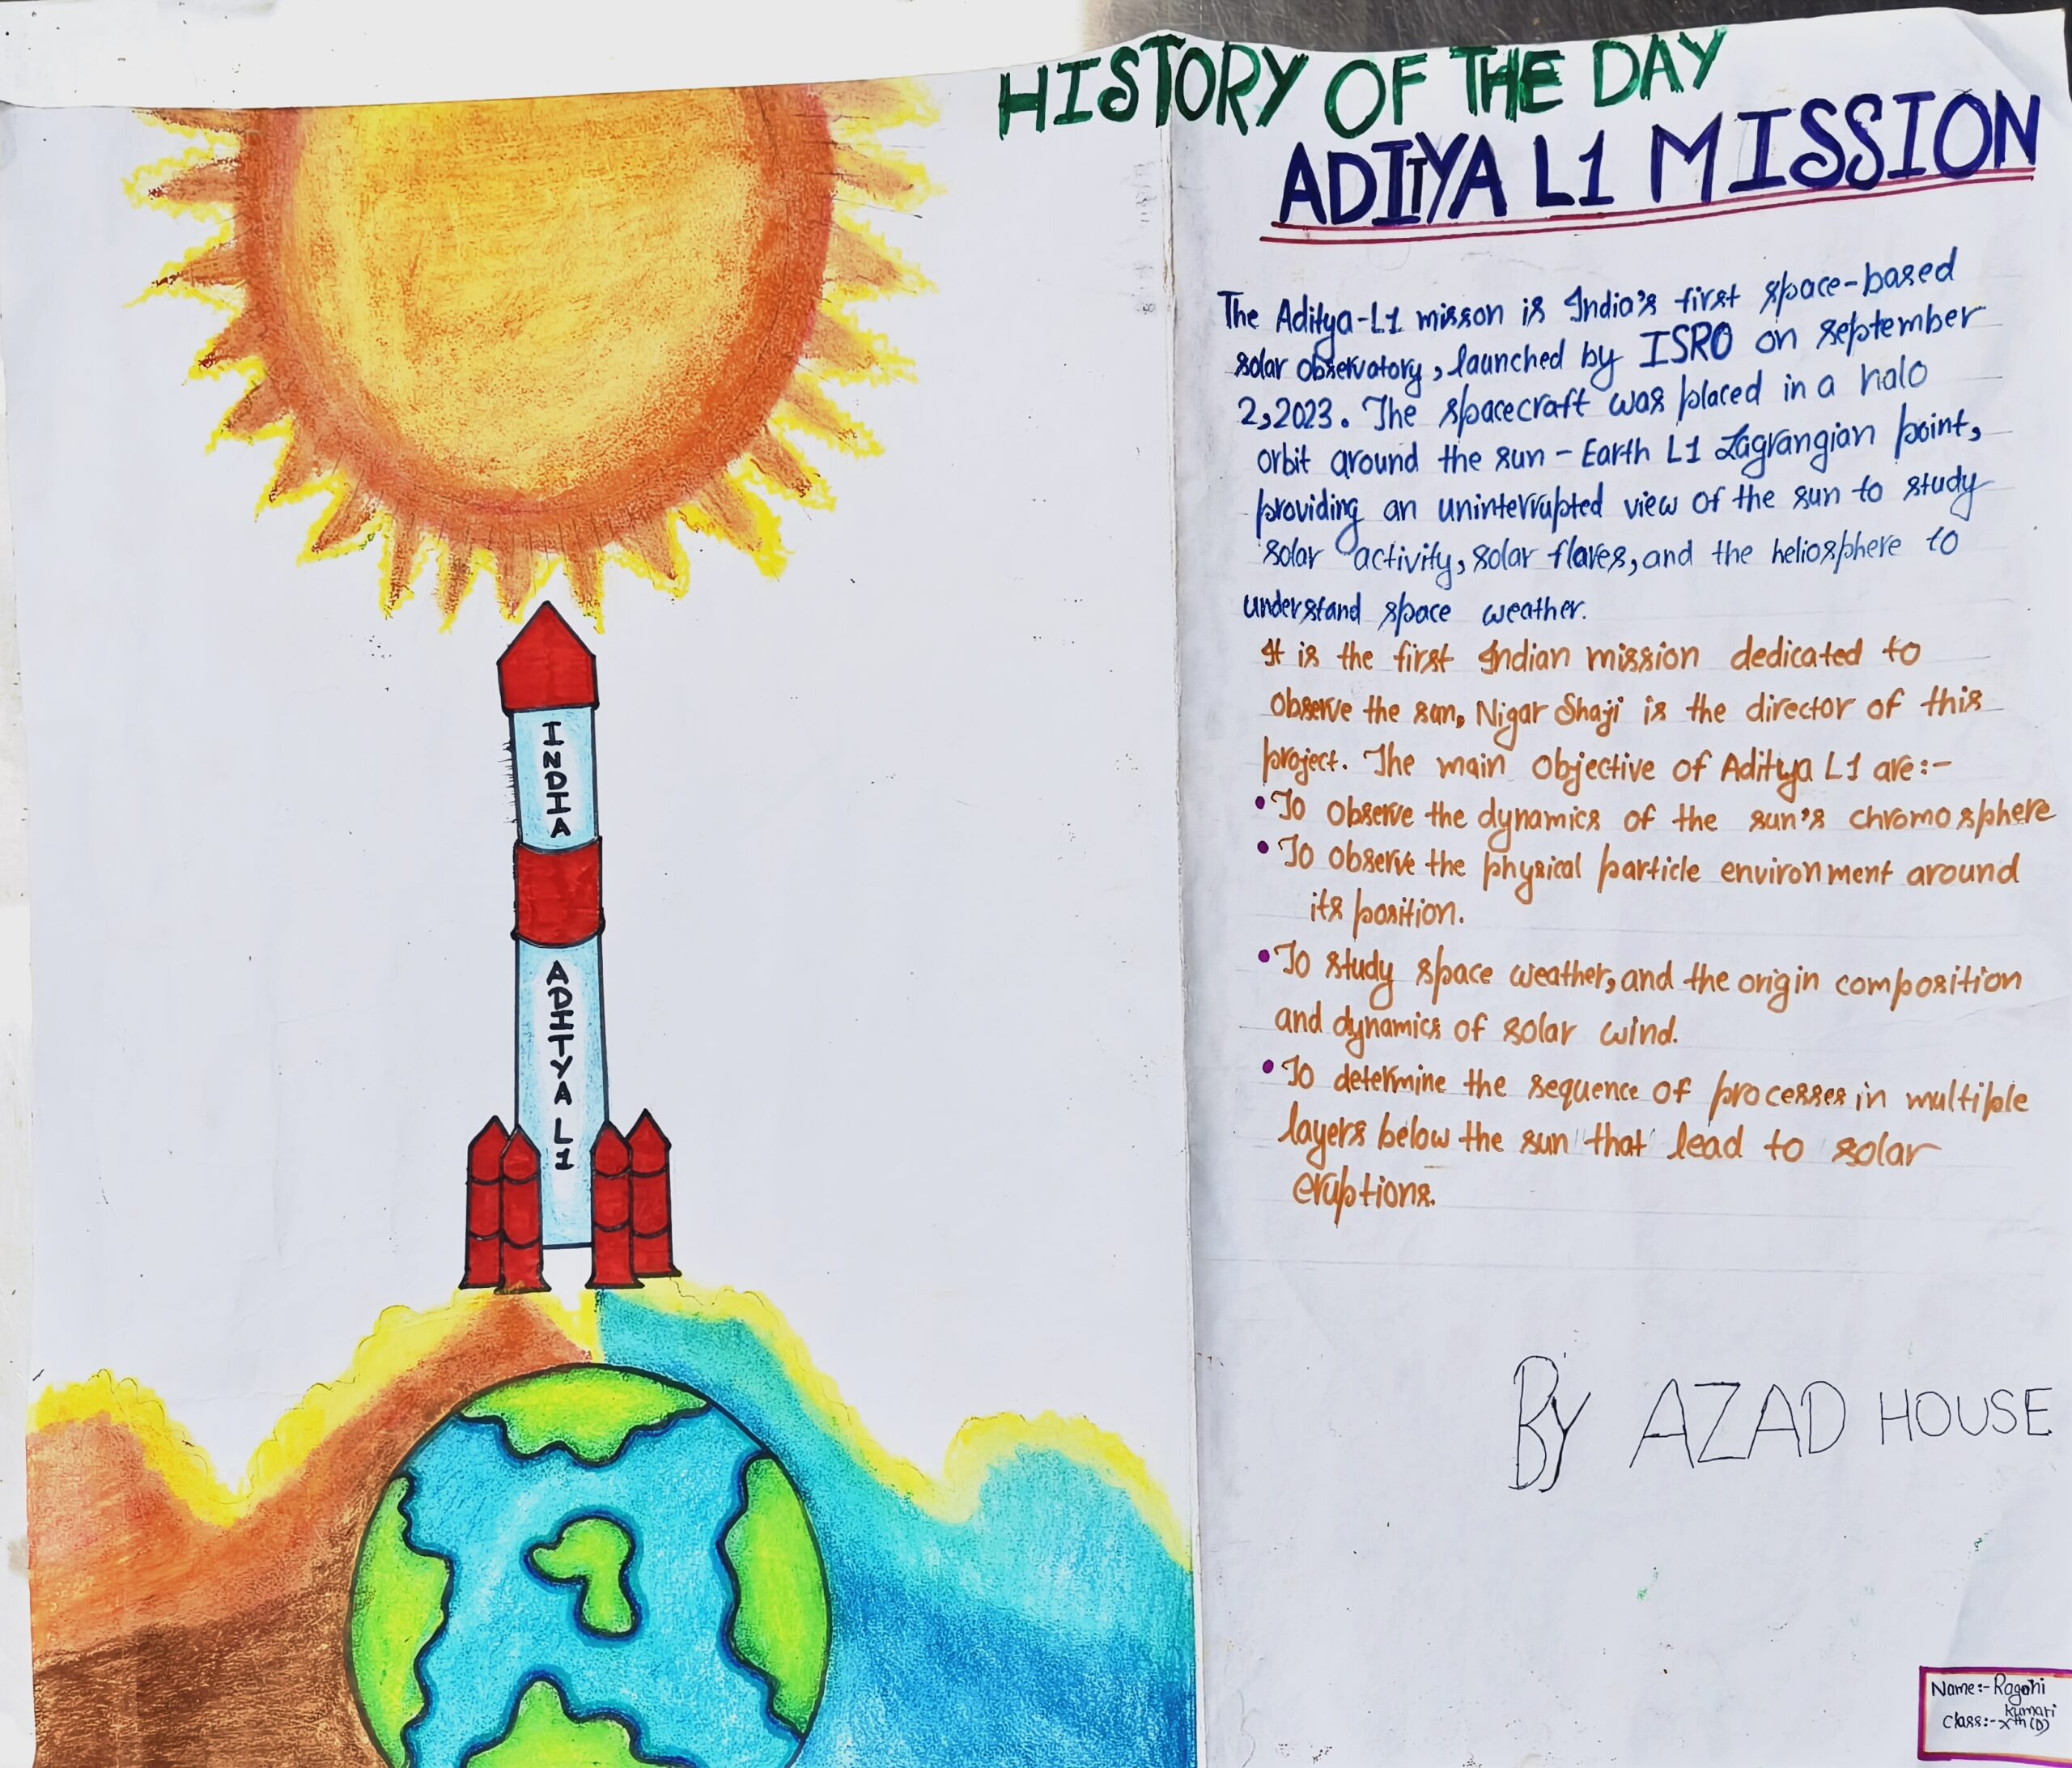 HISTORY OF THE DAY
ADITYA L1 MISSION
The Aditya-L1 misson is India's first space-based
solar observatory, launched by ISRO on september
2,2023. The spacecraft was placed in a halo
orbit around the sun - Earth L1 Lagrangian point,
providing an uninterrupted view of the sun to study
solar activity, solar flares, and the heliosphere to
understand space weather.
It is the first Indian mission dedicated to
observe the sun. Nigar Shaji is the director of this
project. The main objective of Aditya L1 are:-
• To observe the dynamics of the sun's chromosphere
• To observe the physical particle environment around
its position.
• To study space weather, and the origin composition
and dynamics of solar wind.
• To determine the sequence of processes in multiple
layers below the sun that lead to solar
eruptions.
BY AZAD HOUSE
Name:- Ragini
kumari
Class:- Xth (D)
INDIA
ADITYA L1